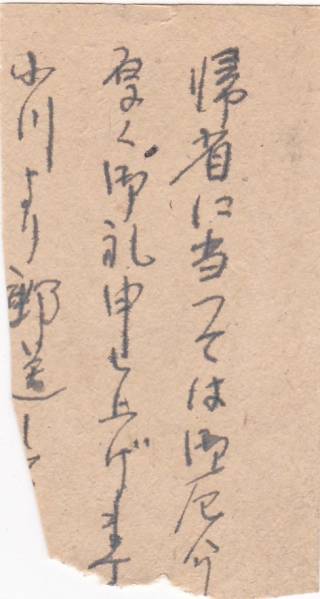 帰省に当つては御厄介
厚く御礼申し上げます
小川より郵送し